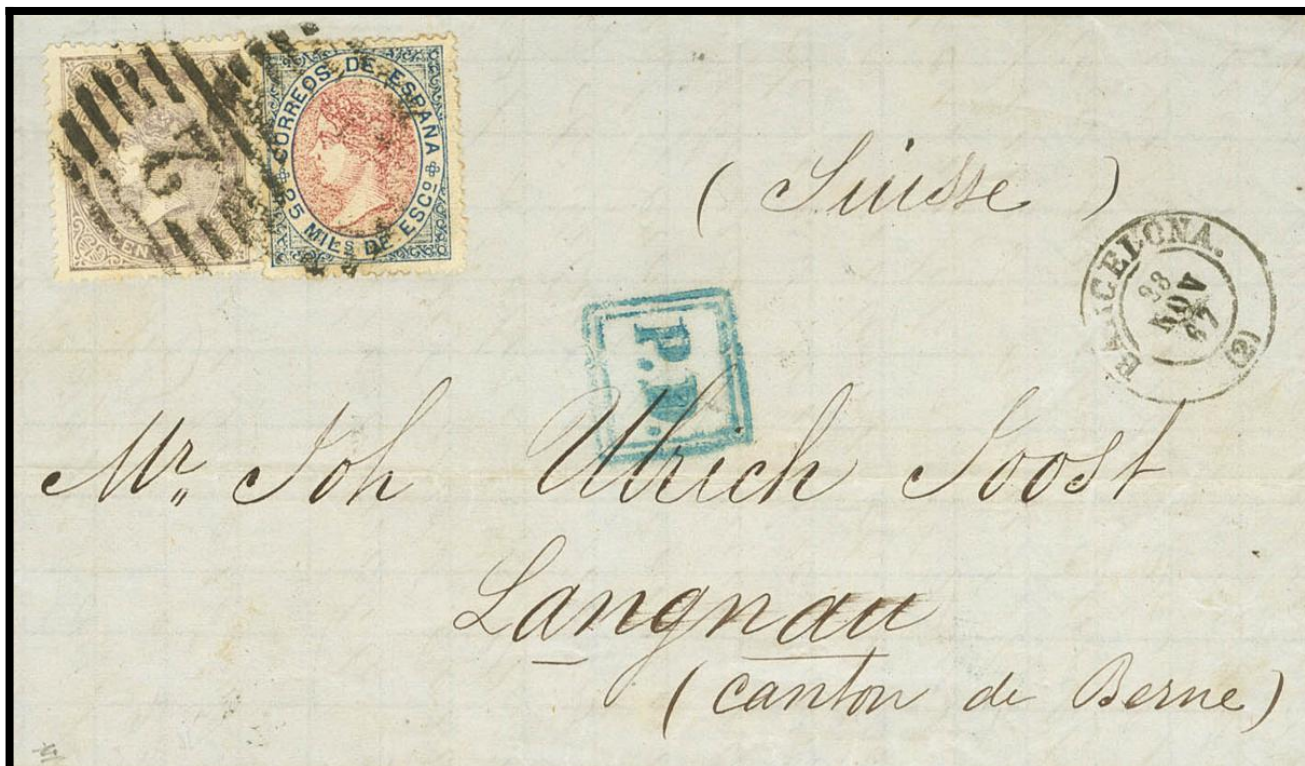 CORREOS DE ESPAÑA
25 MILS DE ESCO
2
(Suisse)
BARCELONA.
(2)
P.D.
Mr,, Joh Ulrich Joost
Langnau
(canton de Berne)